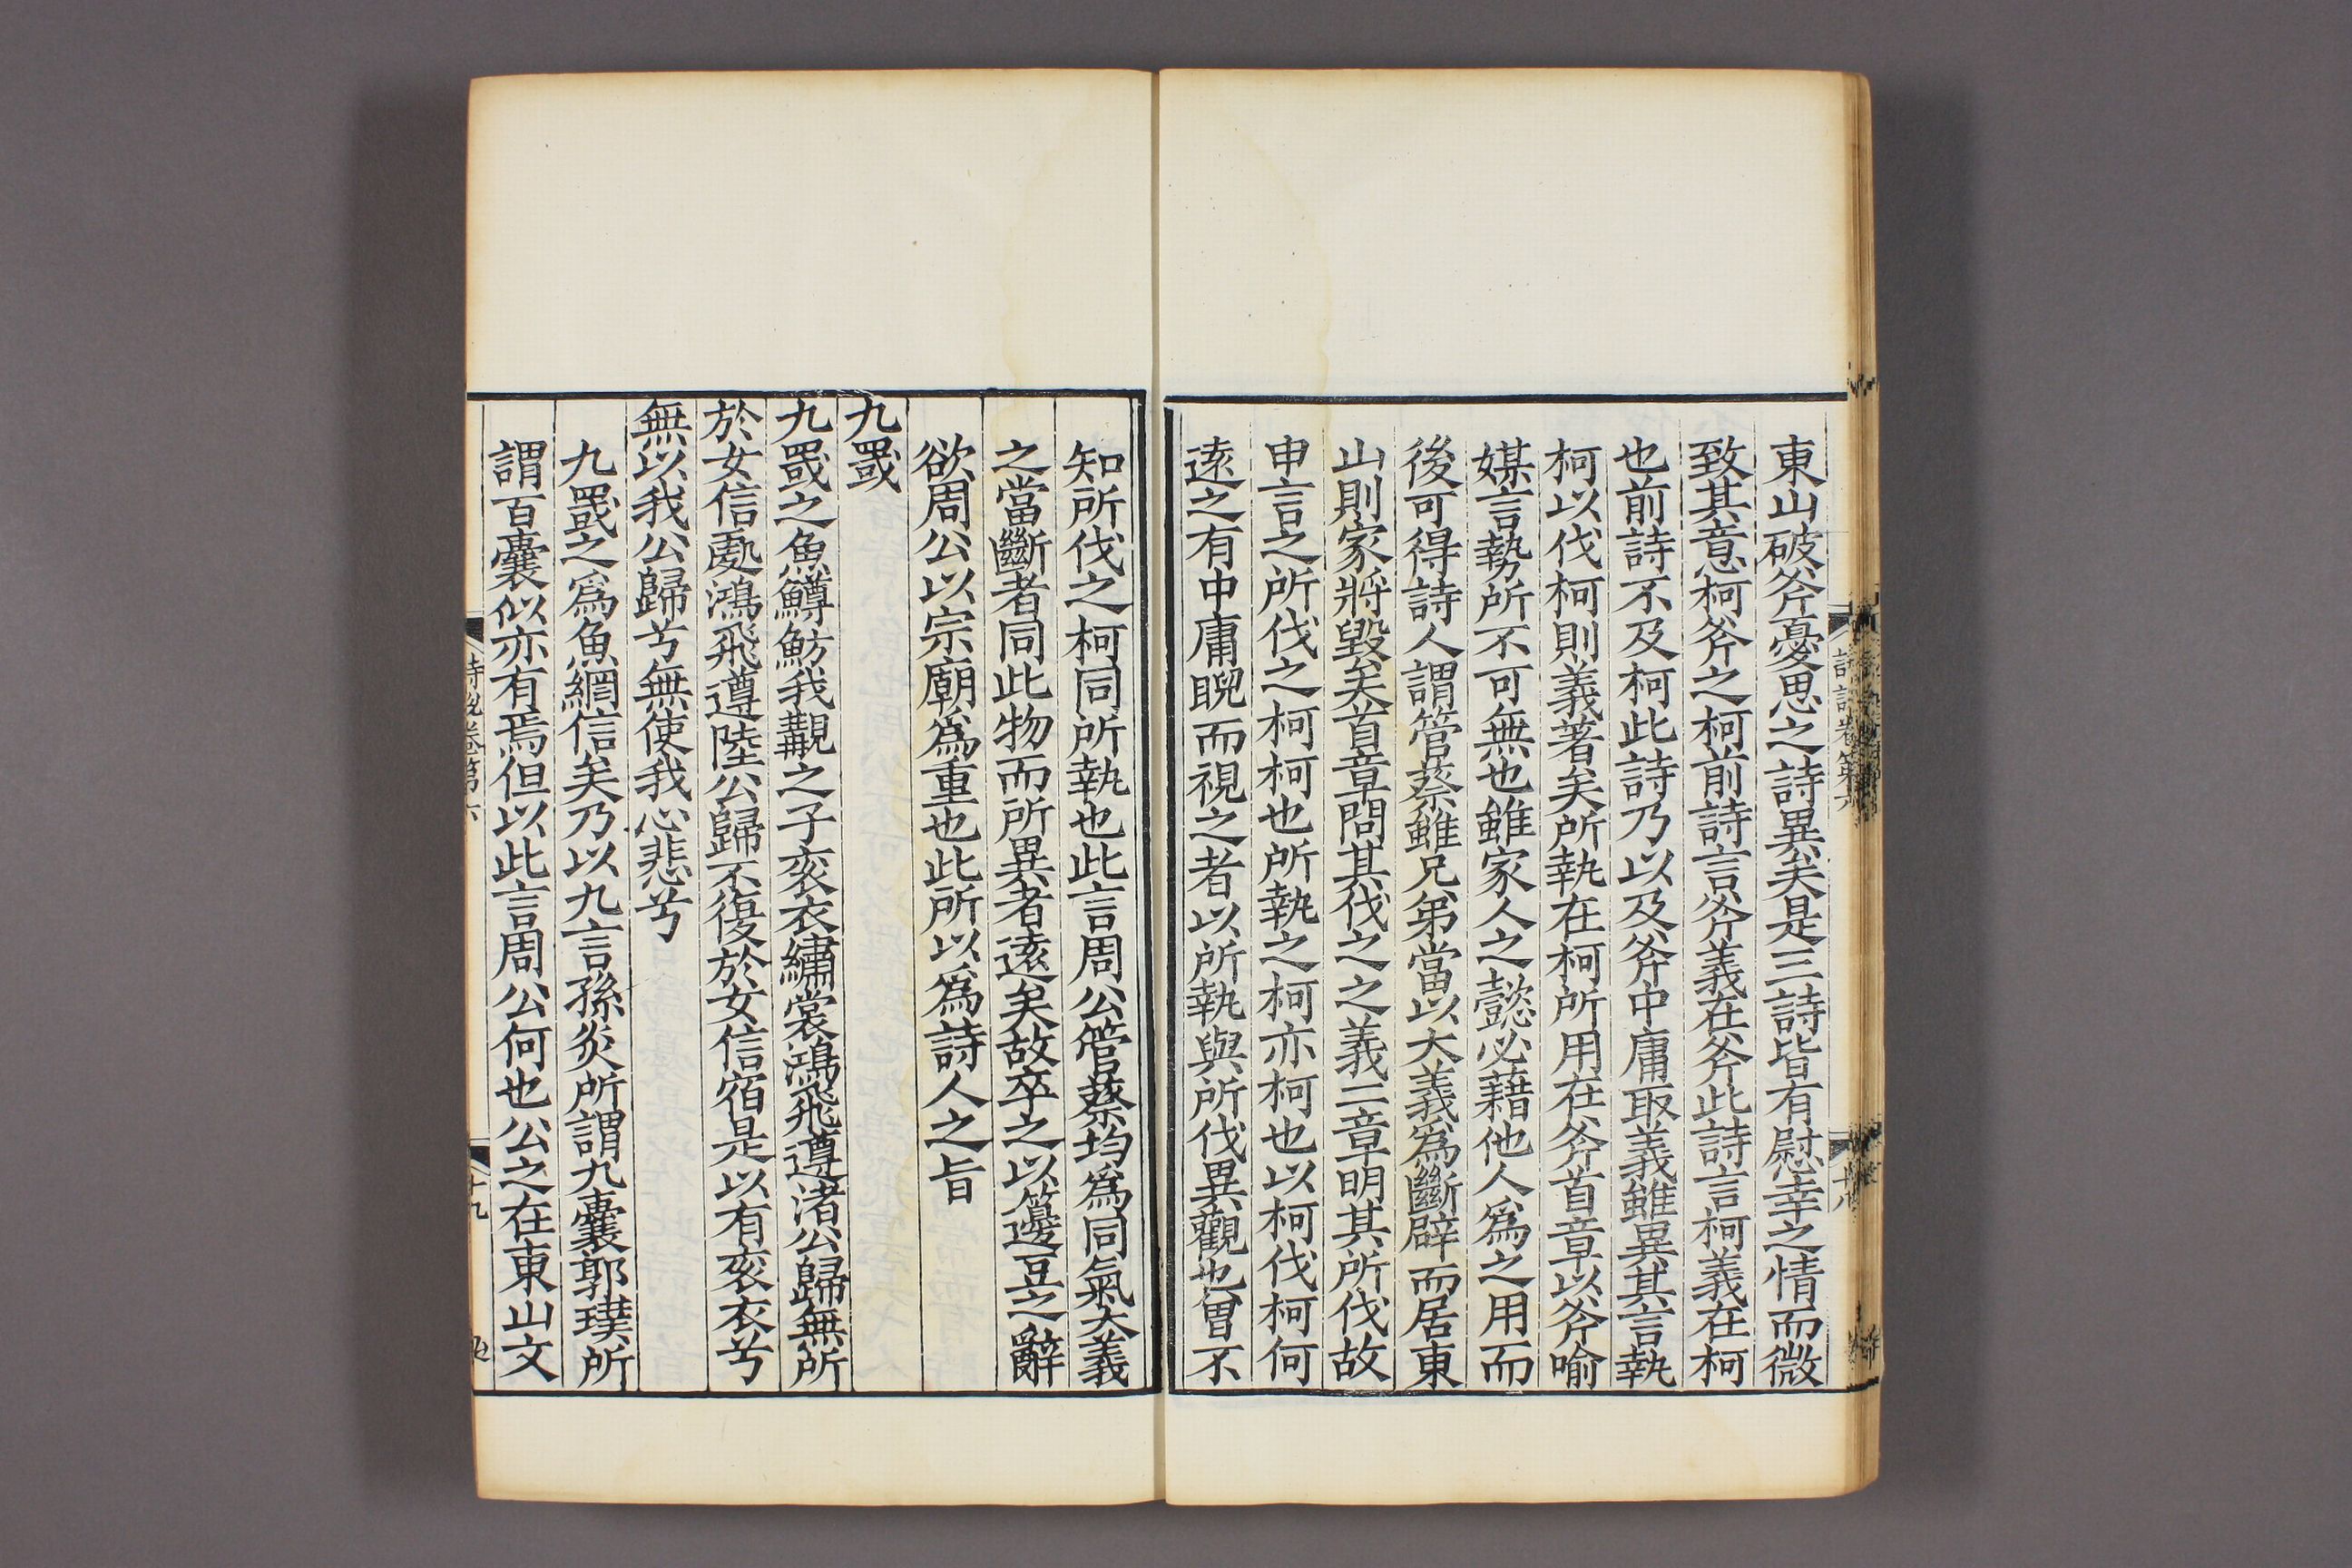 東山破斧憂思之詩異矣是三詩皆有慰幸之情而微
致其意柯斧之柯前詩言斧義在斧此詩言柯義在柯
也前詩不及柯此詩乃以及斧中庸取義雖異其言執
柯以伐柯則義著矣所執在柯所用在斧首章以斧喻
媒言勢所不可無也雖家人之懿必藉他人爲之用而
後可得詩人謂管蔡雖兄弟當以大義爲斷辟而居東
山則家將毀矣首章問其伐之之義三章明其所伐故
申言之所伐之柯柯也所執之柯亦柯也以柯伐柯何
遠之有中庸睨而視之者以所執與所伐異觀也曾不
知所伐之柯同所執也此言周公管蔡均爲同氣大義
之當斷者同此物而所異者遠矣故卒之以籩豆之辭
欲周公以宗廟爲重也此所以爲詩人之旨
九罭
九罭之魚鱒魴我覯之子衮衣繡裳鴻飛遵渚公歸無所
於女信處鴻飛遵陸公歸不復於女信宿是以有衮衣兮
無以我公歸兮無使我心悲兮
九罭之爲魚網信矣乃以九言孫炎所謂九囊郭璞所
謂百囊似亦有焉但以此言周公何也公之在東山文
詩說卷第六
十九